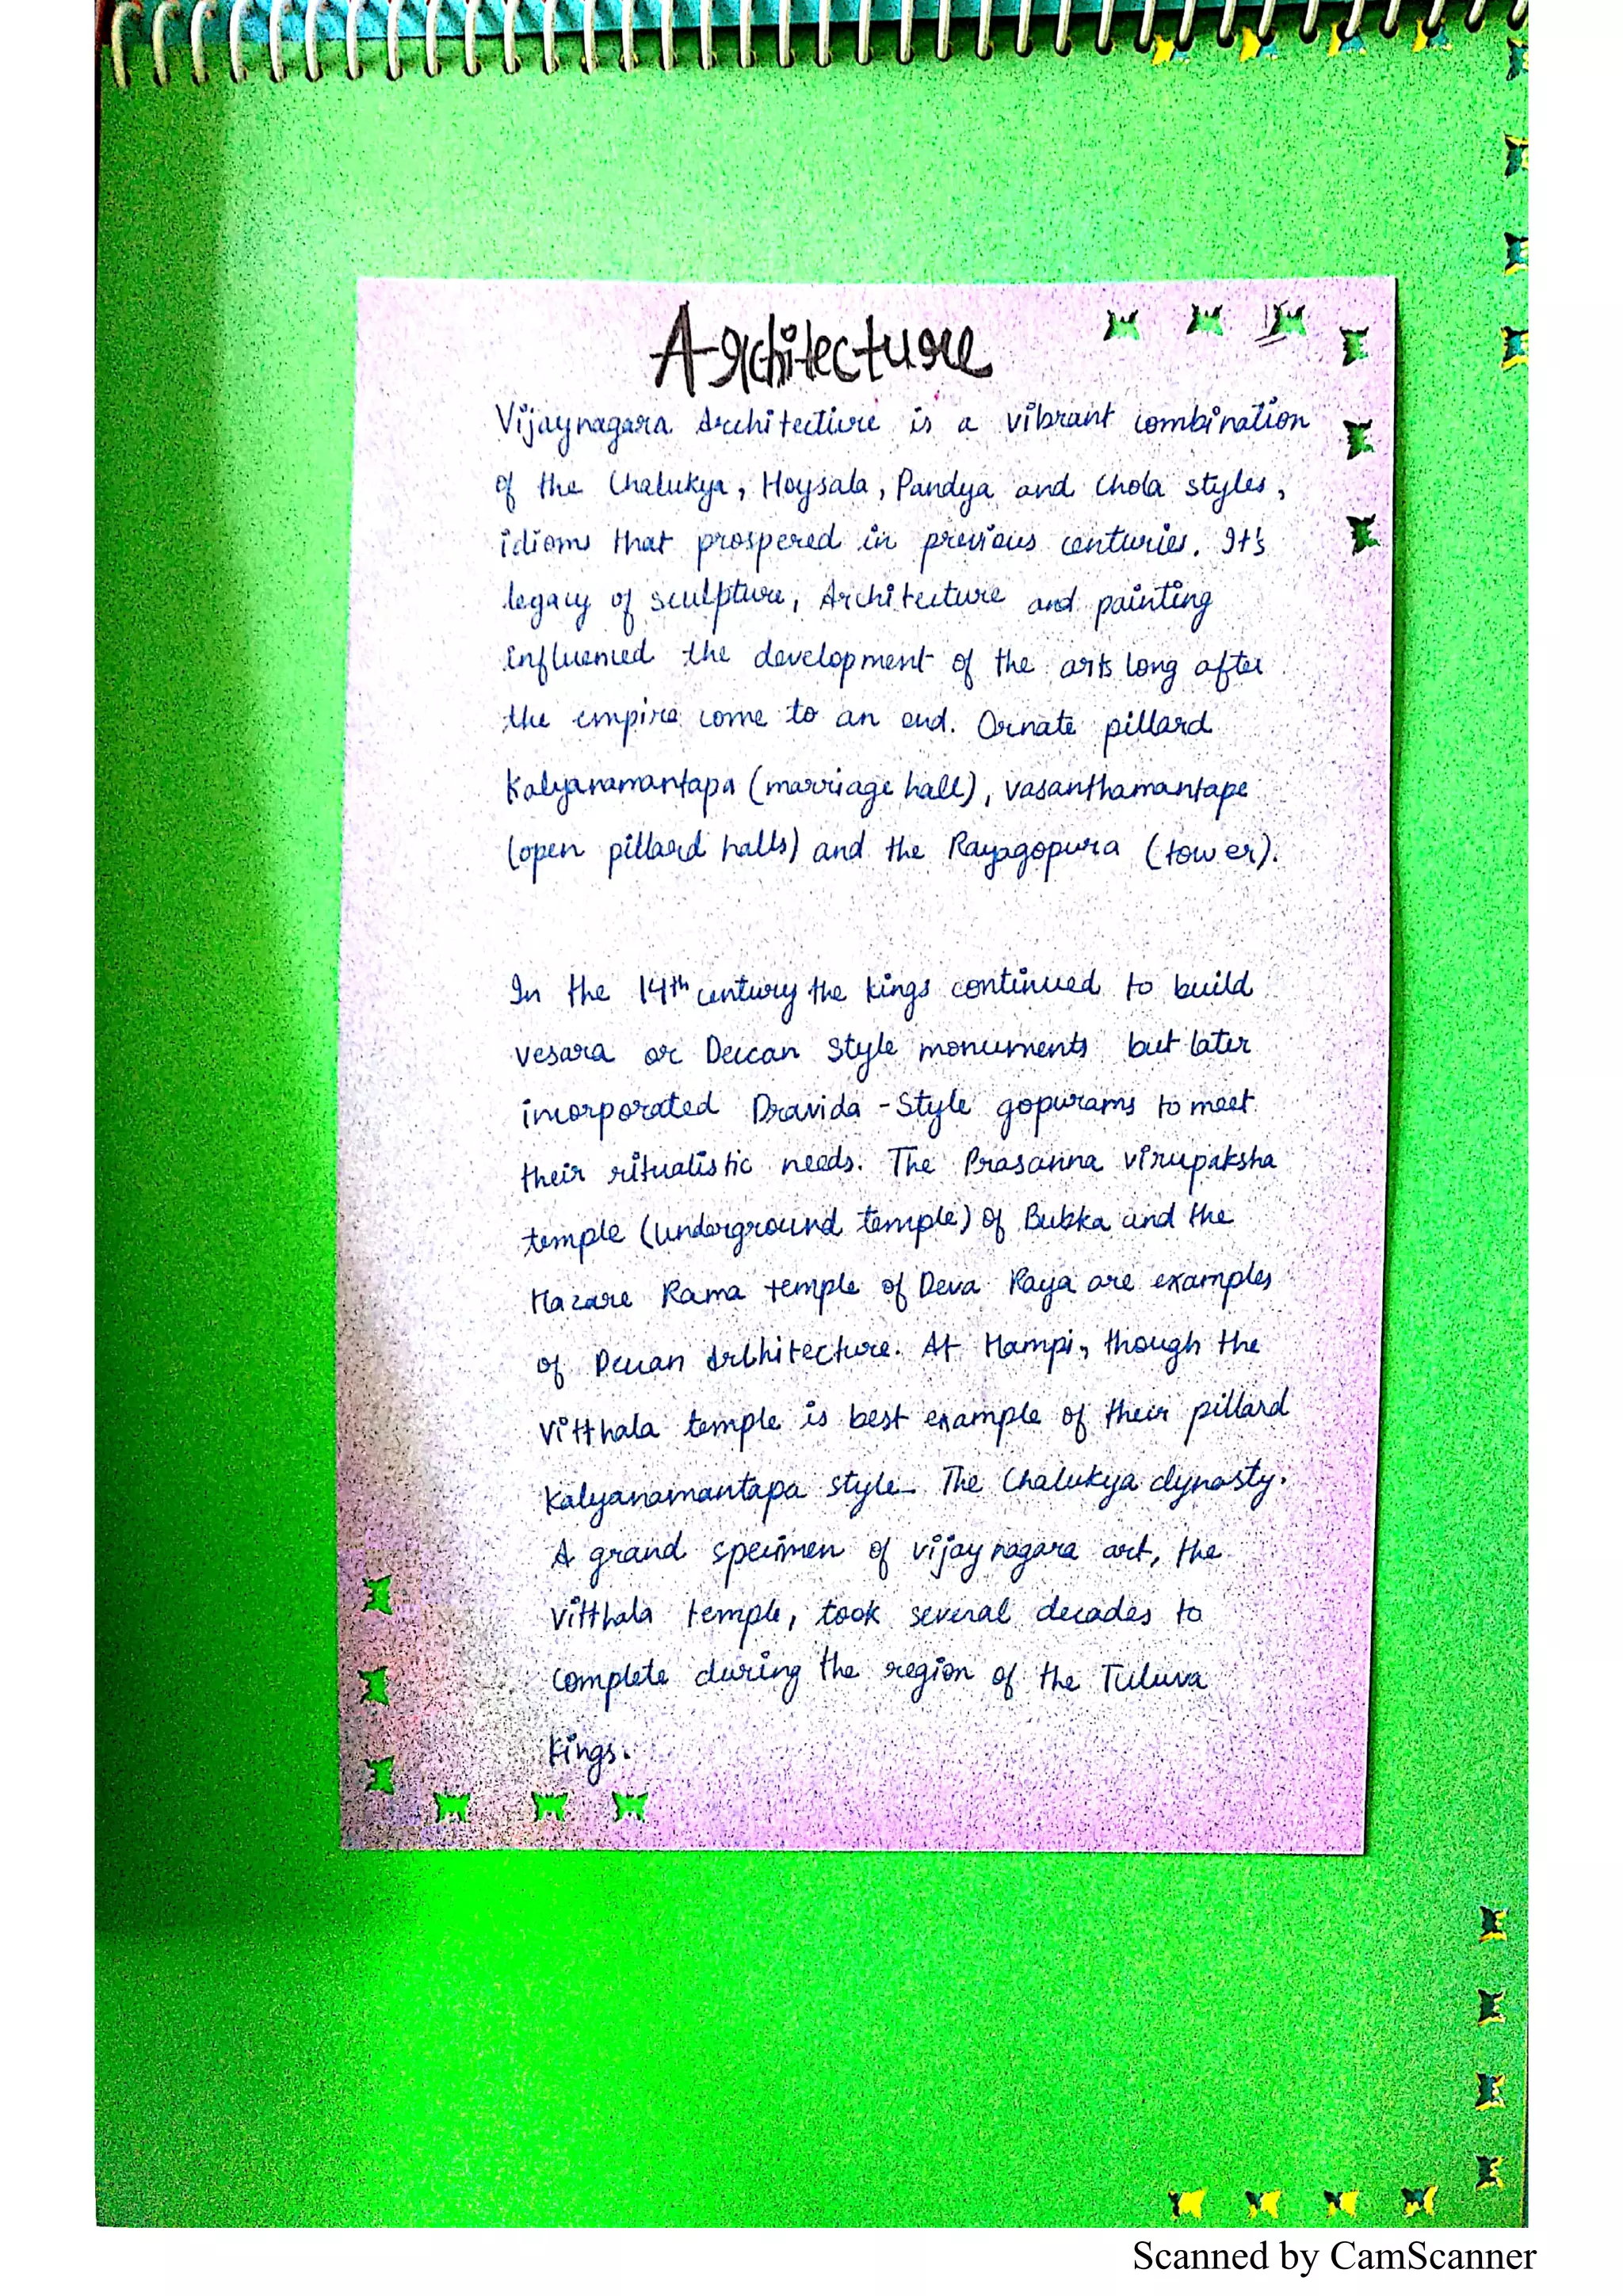 Architecture
Vijaynagara Architecture is a vibrant combination
of the Chalukya, Hoysala, Pandya and Chola styles,
idioms that prospered in previous centuries. It's
legacy of sculpture, Architecture and painting
influenced the development of the arts long after
the empire come to an end. Ornate pillard
Kalyanamantapa (marriage hall), vasanthamantape
(open pillard halls) and the Rayagopura (tower).
In the 14th century the kings continued to build
vesara or Deccan style monuments but later
incorporated Dravida-Style gopurams to meet
their ritualistic needs. The Prasanna virupaksha
temple (underground temple) of Bukka and the
Hazare Rama temple of Deva Raya are examples
of Deccan Architecture. At Hampi, though the
Vitthala temple is best example of their pillard
Kalyanamantapa style. The Chalukya dynasty.
A grand specimen of vijaynagara art, the
Vitthala temple, took several decades to
complete during the region of the Tuluva
kings.
Scanned by CamScanner